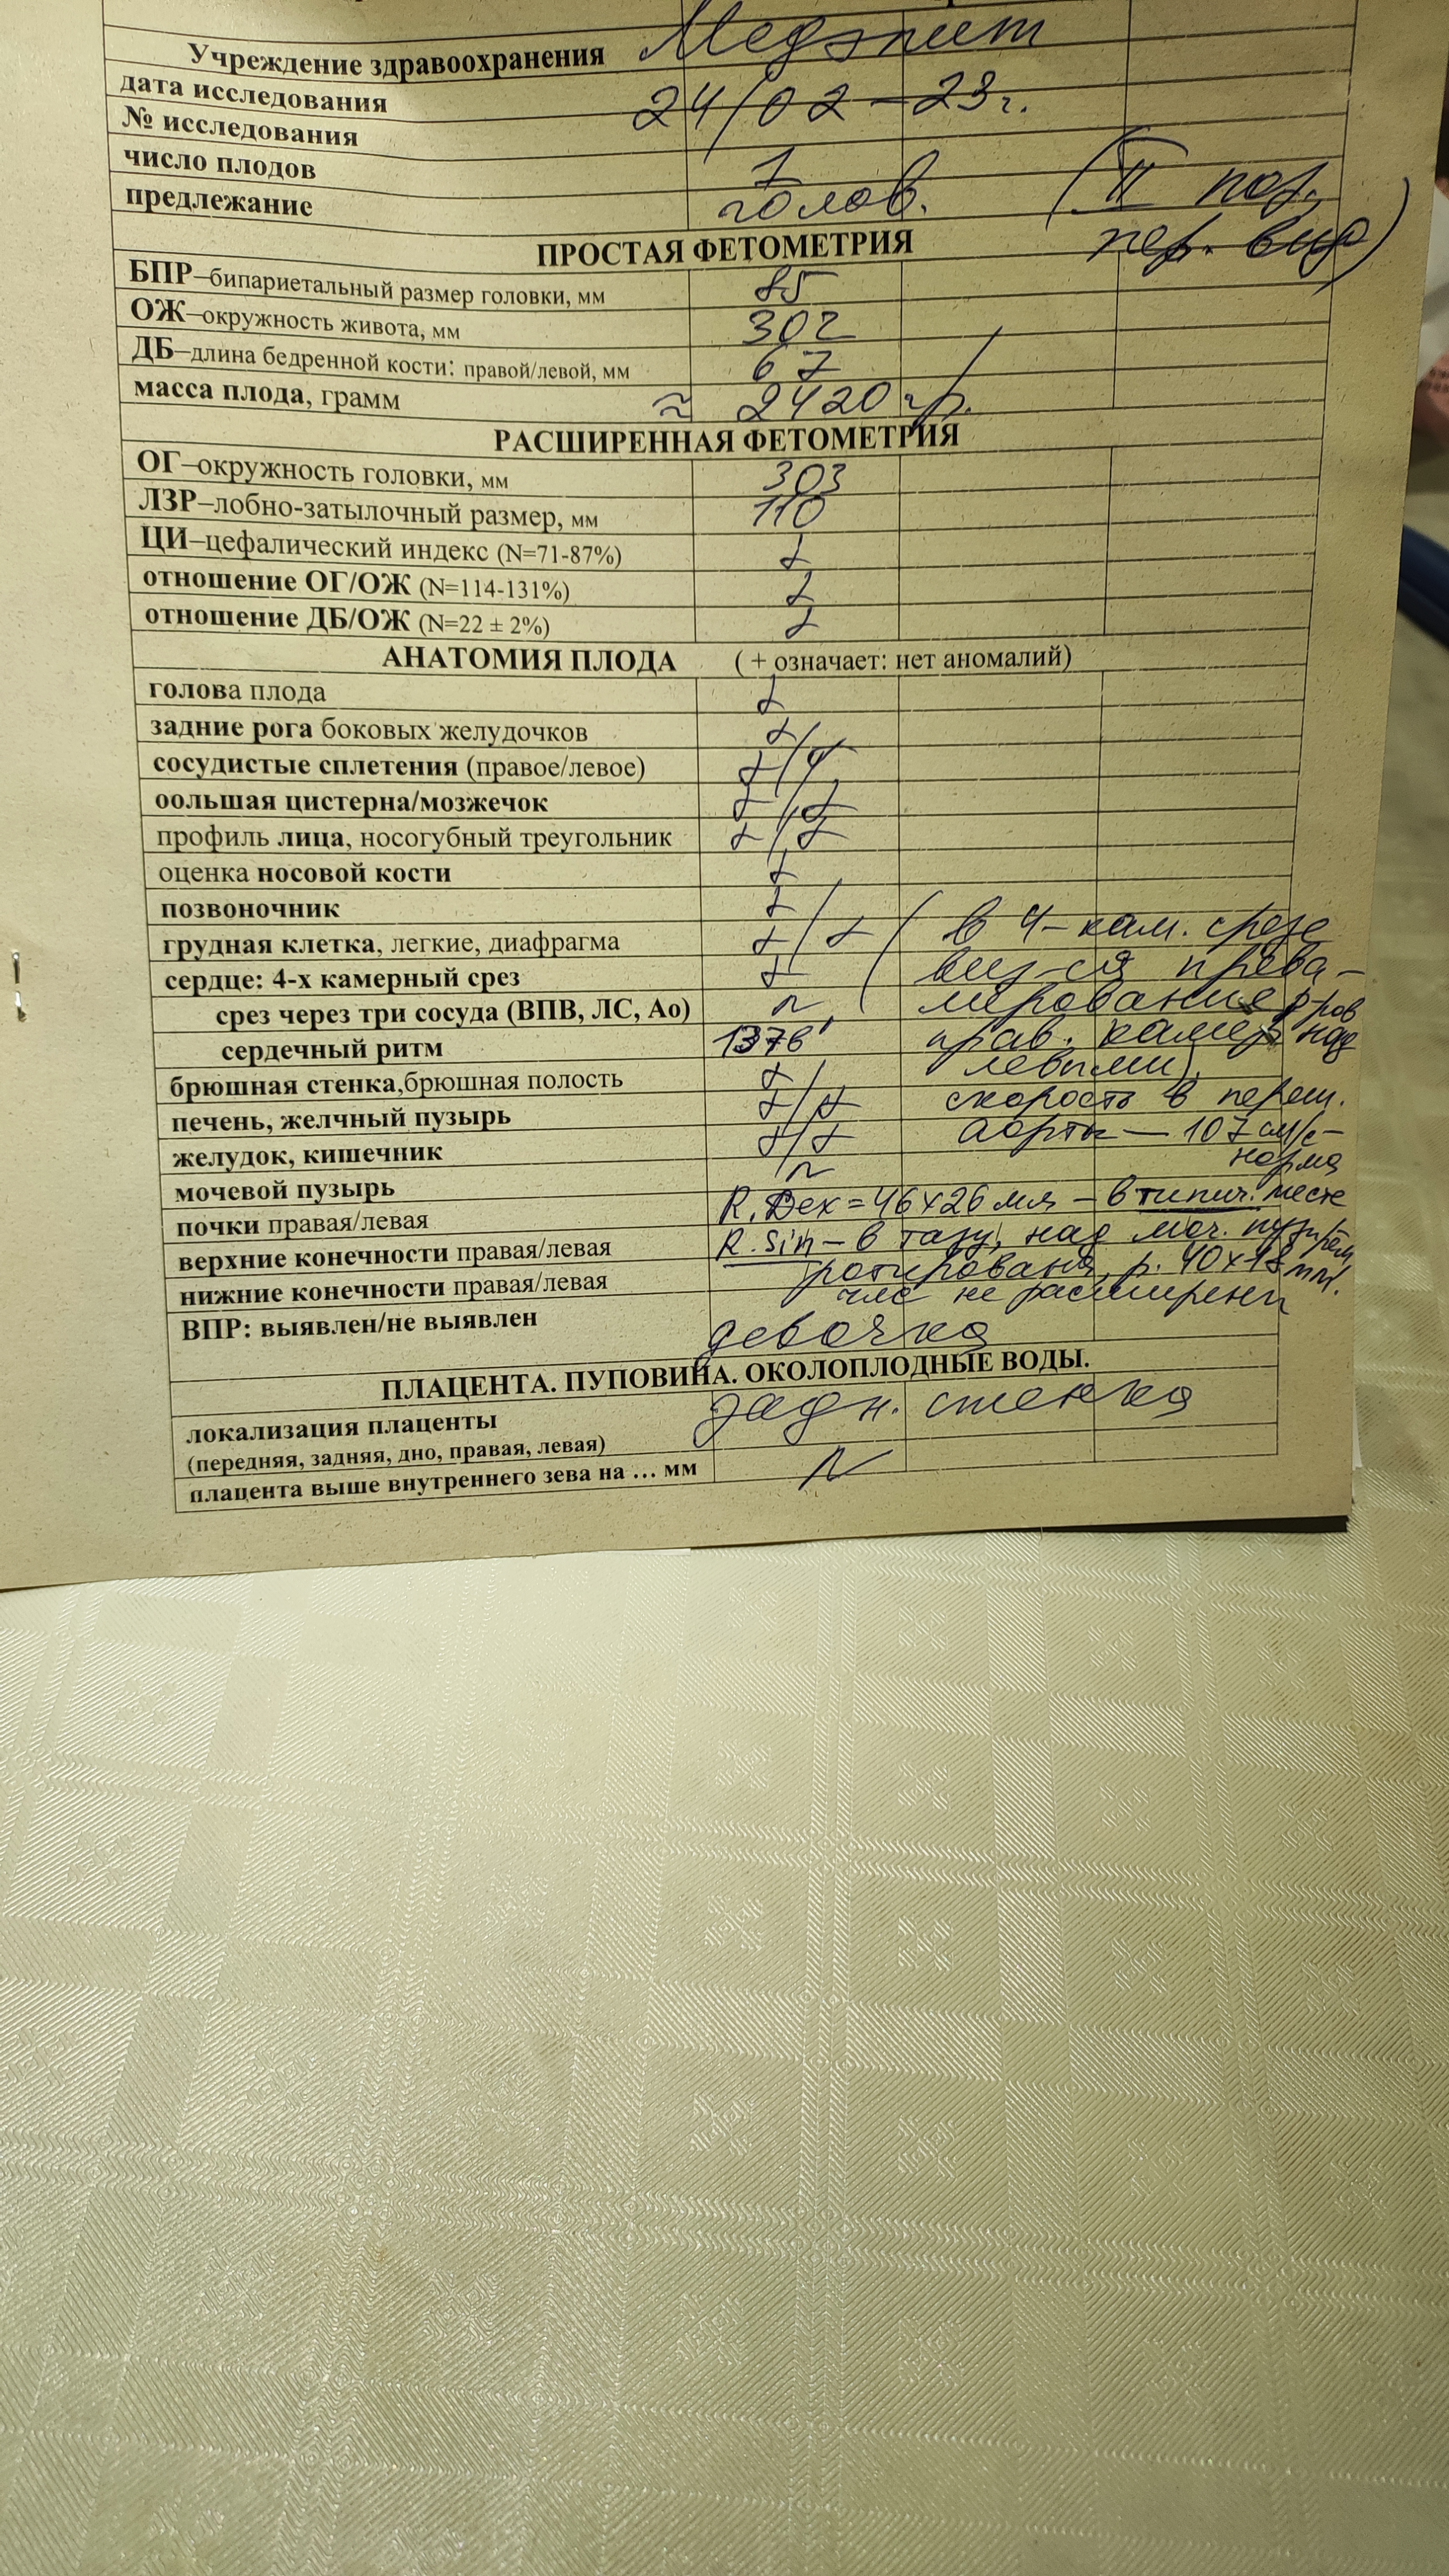 Учреждение здравоохранения Медэлит
дата исследования 24/02-23г.
№ исследования
число плодов 1
предлежание голов. (II поз,
пер. вид)
ПРОСТАЯ ФЕТОМЕТРИЯ
БПР–бипариетальный размер головки, мм 85
ОЖ–окружность живота, мм 302
ДБ–длина бедренной кости: правой/левой, мм 67
масса плода, грамм ≈ 2420 гр.
РАСШИРЕННАЯ ФЕТОМЕТРИЯ
ОГ–окружность головки, мм 303
ЛЗР–лобно-затылочный размер, мм 110
ЦИ–цефалический индекс (N=71-87%) +
отношение ОГ/ОЖ (N=114-131%) +
отношение ДБ/ОЖ (N=22 ± 2%) +
АНАТОМИЯ ПЛОДА ( + означает: нет аномалий)
голова плода +
задние рога боковых желудочков +
сосудистые сплетения (правое/левое) +/+
оольшая цистерна/мозжечок +/+
профиль лица, носогубный треугольник +/+
оценка носовой кости +
позвоночник +
грудная клетка, легкие, диафрагма +/+ (в 4-кам. срезе
сердце: 4-х камерный срез + виз-ся прева-
срез через три сосуда (ВПВ, ЛС, Ао) N лирование р-ров
сердечный ритм 137 прав. камер над
левыми),
брюшная стенка,брюшная полость +/
печень, желчный пузырь +/+ скорость в переш.
желудок, кишечник +/+ аорты — 107 см/с-
норма
мочевой пузырь N
почки правая/левая R. Dex = 46х26 мм – в типич. месте
верхние конечности правая/левая R. Sin – в тазу, над моч. пузырём,
нижние конечности правая/левая ротирована, р. 40х18 мм.
члс не расширены
ВПР: выявлен/не выявлен девочка
ПЛАЦЕНТА. ПУПОВИНА. ОКОЛОПЛОДНЫЕ ВОДЫ.
локализация плаценты задн. стенка
(передняя, задняя, дно, правая, левая)
плацента выше внутреннего зева на … мм N